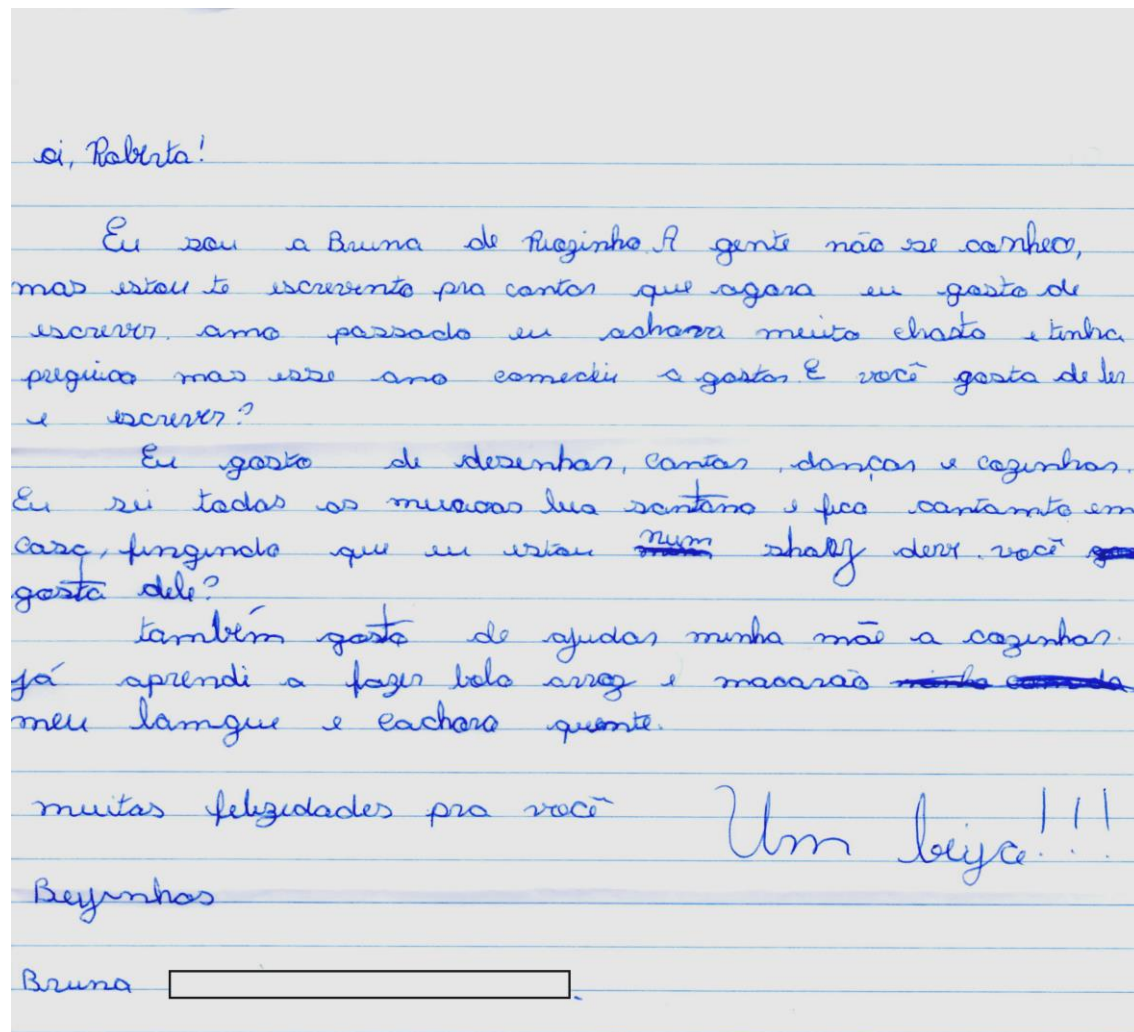 oi, Roberta!
Eu sou a Bruna de Riozinho. A gente não se conhece,
mas estou te escrevento pra contar que agora eu gosto de
escrever. amo passado eu achava muito chasto e tinha
preguica mas esse ano comecei a gostar. E você gosta de ler
e escrever?
Eu gosto de desenhar, cantar, dançar e cozinhar.
Eu sei todas as musicas lua santano e fico cantamto em
casa, fingindo que eu estou num você
gosta dele?
também gosto de ajudar minha mãe a cozinhar.
já aprendi a fazer bolo arroz e macarão
meu lamgue e cachoro quente.
muitas felizidades pra você
Um beijo!!!
Beijinhos
Bruna